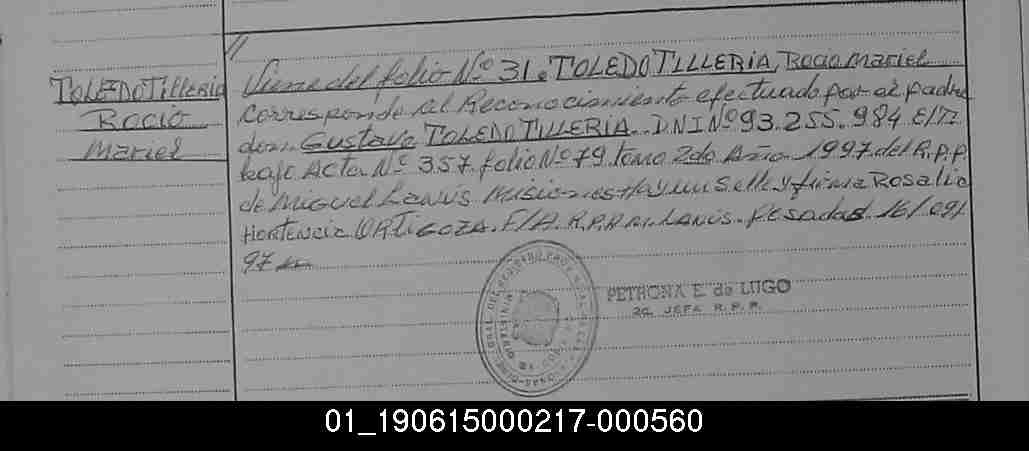 TOLEDO Tilleria
Rocio
Mariel
Viene del folio Nº 31. TOLEDO TILLERIA, Rocio Mariel
corresponde al Reconocimiento efectuado por el padre
don. Gustavo TOLEDO TILLERIA. DNI Nº 93.255.984
bajo Acta Nº 357. folio Nº 79. tomo 2do Año 1997 del R.P.P.
de Miguel Lanús Misiones Hay un sello y firma Rosalia
Hortencia ORTIGOZA. F/A. R.P.P. M. Lanús. Posadas. 16/09/
97
PETRONA E. de LUGO
2a. JEFA R.P.P.
01_190615000217-000560